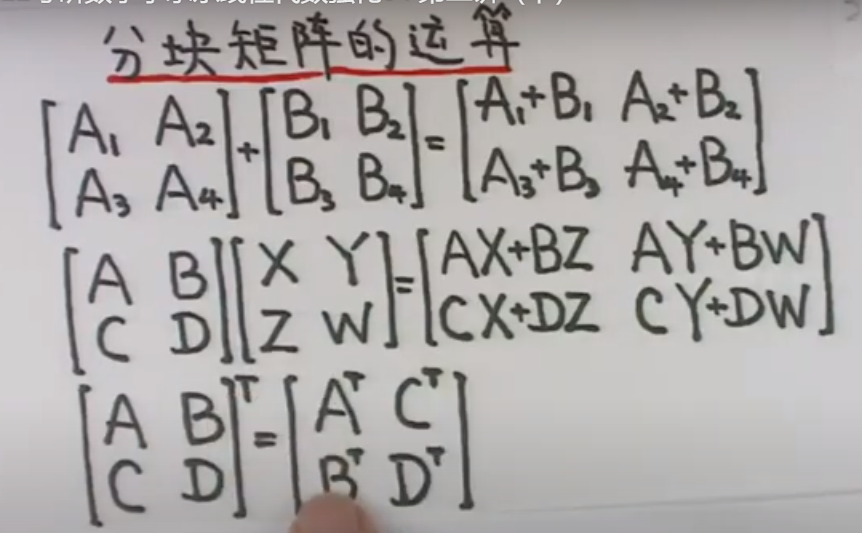 分块矩阵的运算
[A₁ A₂; A₃ A₄] + [B₁ B₂; B₃ B₄] = [A₁+B₁ A₂+B₂; A₃+B₃ A₄+B₄]
[A B; C D][X Y; Z W] = [AX+BZ AY+BW; CX+DZ CY+DW]
[A B; C D]ᵀ = [Aᵀ Cᵀ; Bᵀ Dᵀ]